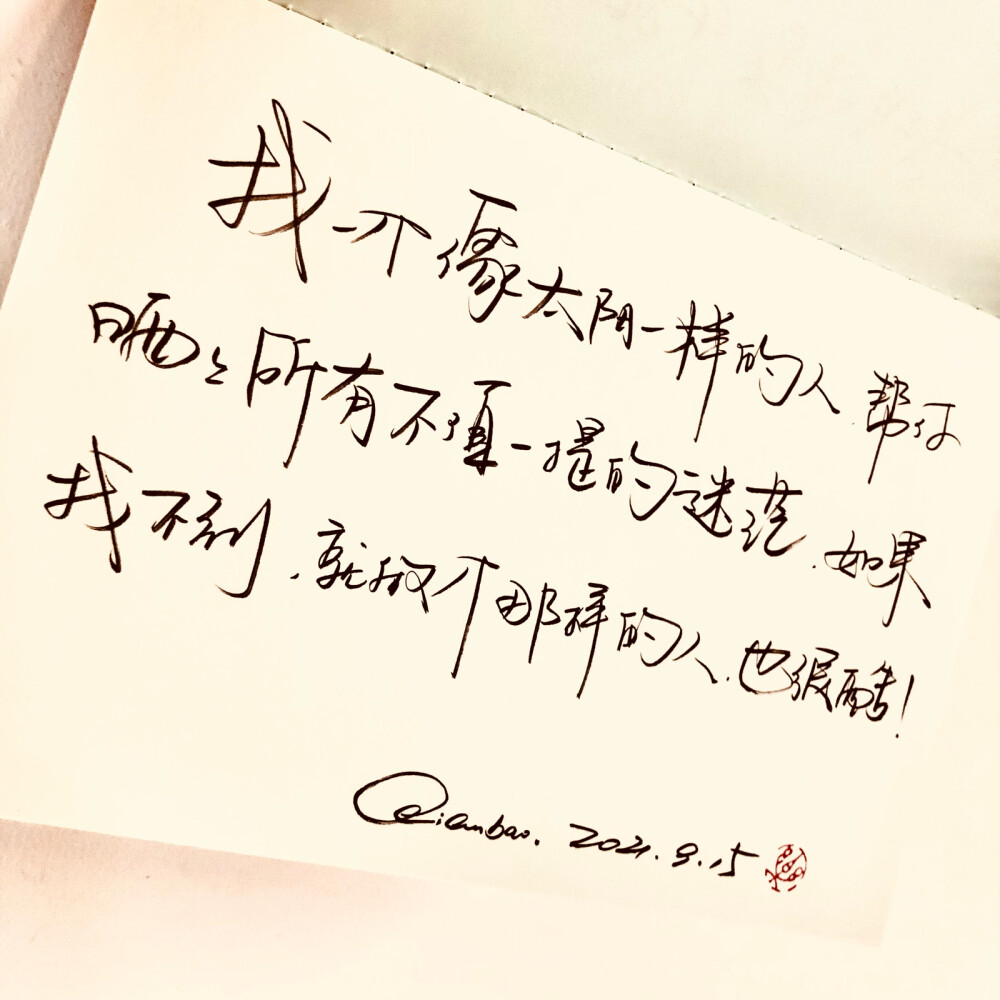 找一个像太阳一样的人.帮你
晒晒所有不值一提的迷茫.如果
找不到.就做个那样的人.也很酷!
Qianbao. 2021.9.15